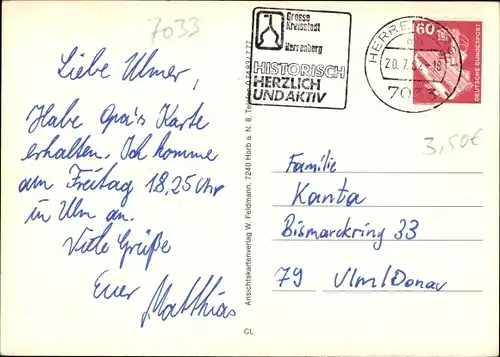 7033
Liebe Ulmer,
Habe Opa's Karte
erhalten. Ich komme
am Freitag 18,25 Uhr
in Ulm an.
Viele Grüße
Euer Matthias
CL
Ansichtskartenverlag W. Feldmann, 7240 Horb a. N. 8, Telefon
Grosse
Kreisstadt
Herrenberg
HISTORISCH
HERZLICH
UND AKTIV
20.7.
7033
60
DEUTSCHE BUNDESPOST
3,50€
Familie
Kanta
Bismarckring 33
79 Ulm/Donau